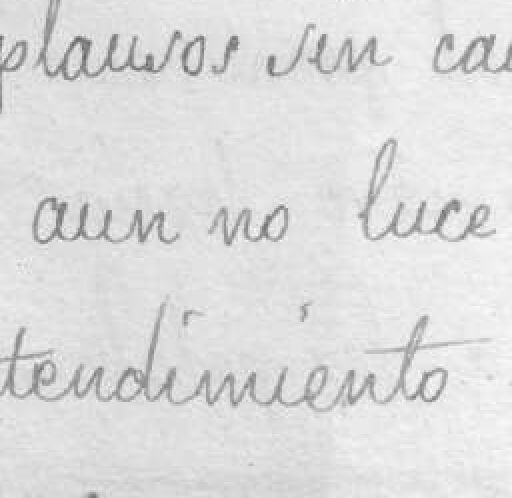 plausos sin cau
aun no luce
tendimiento